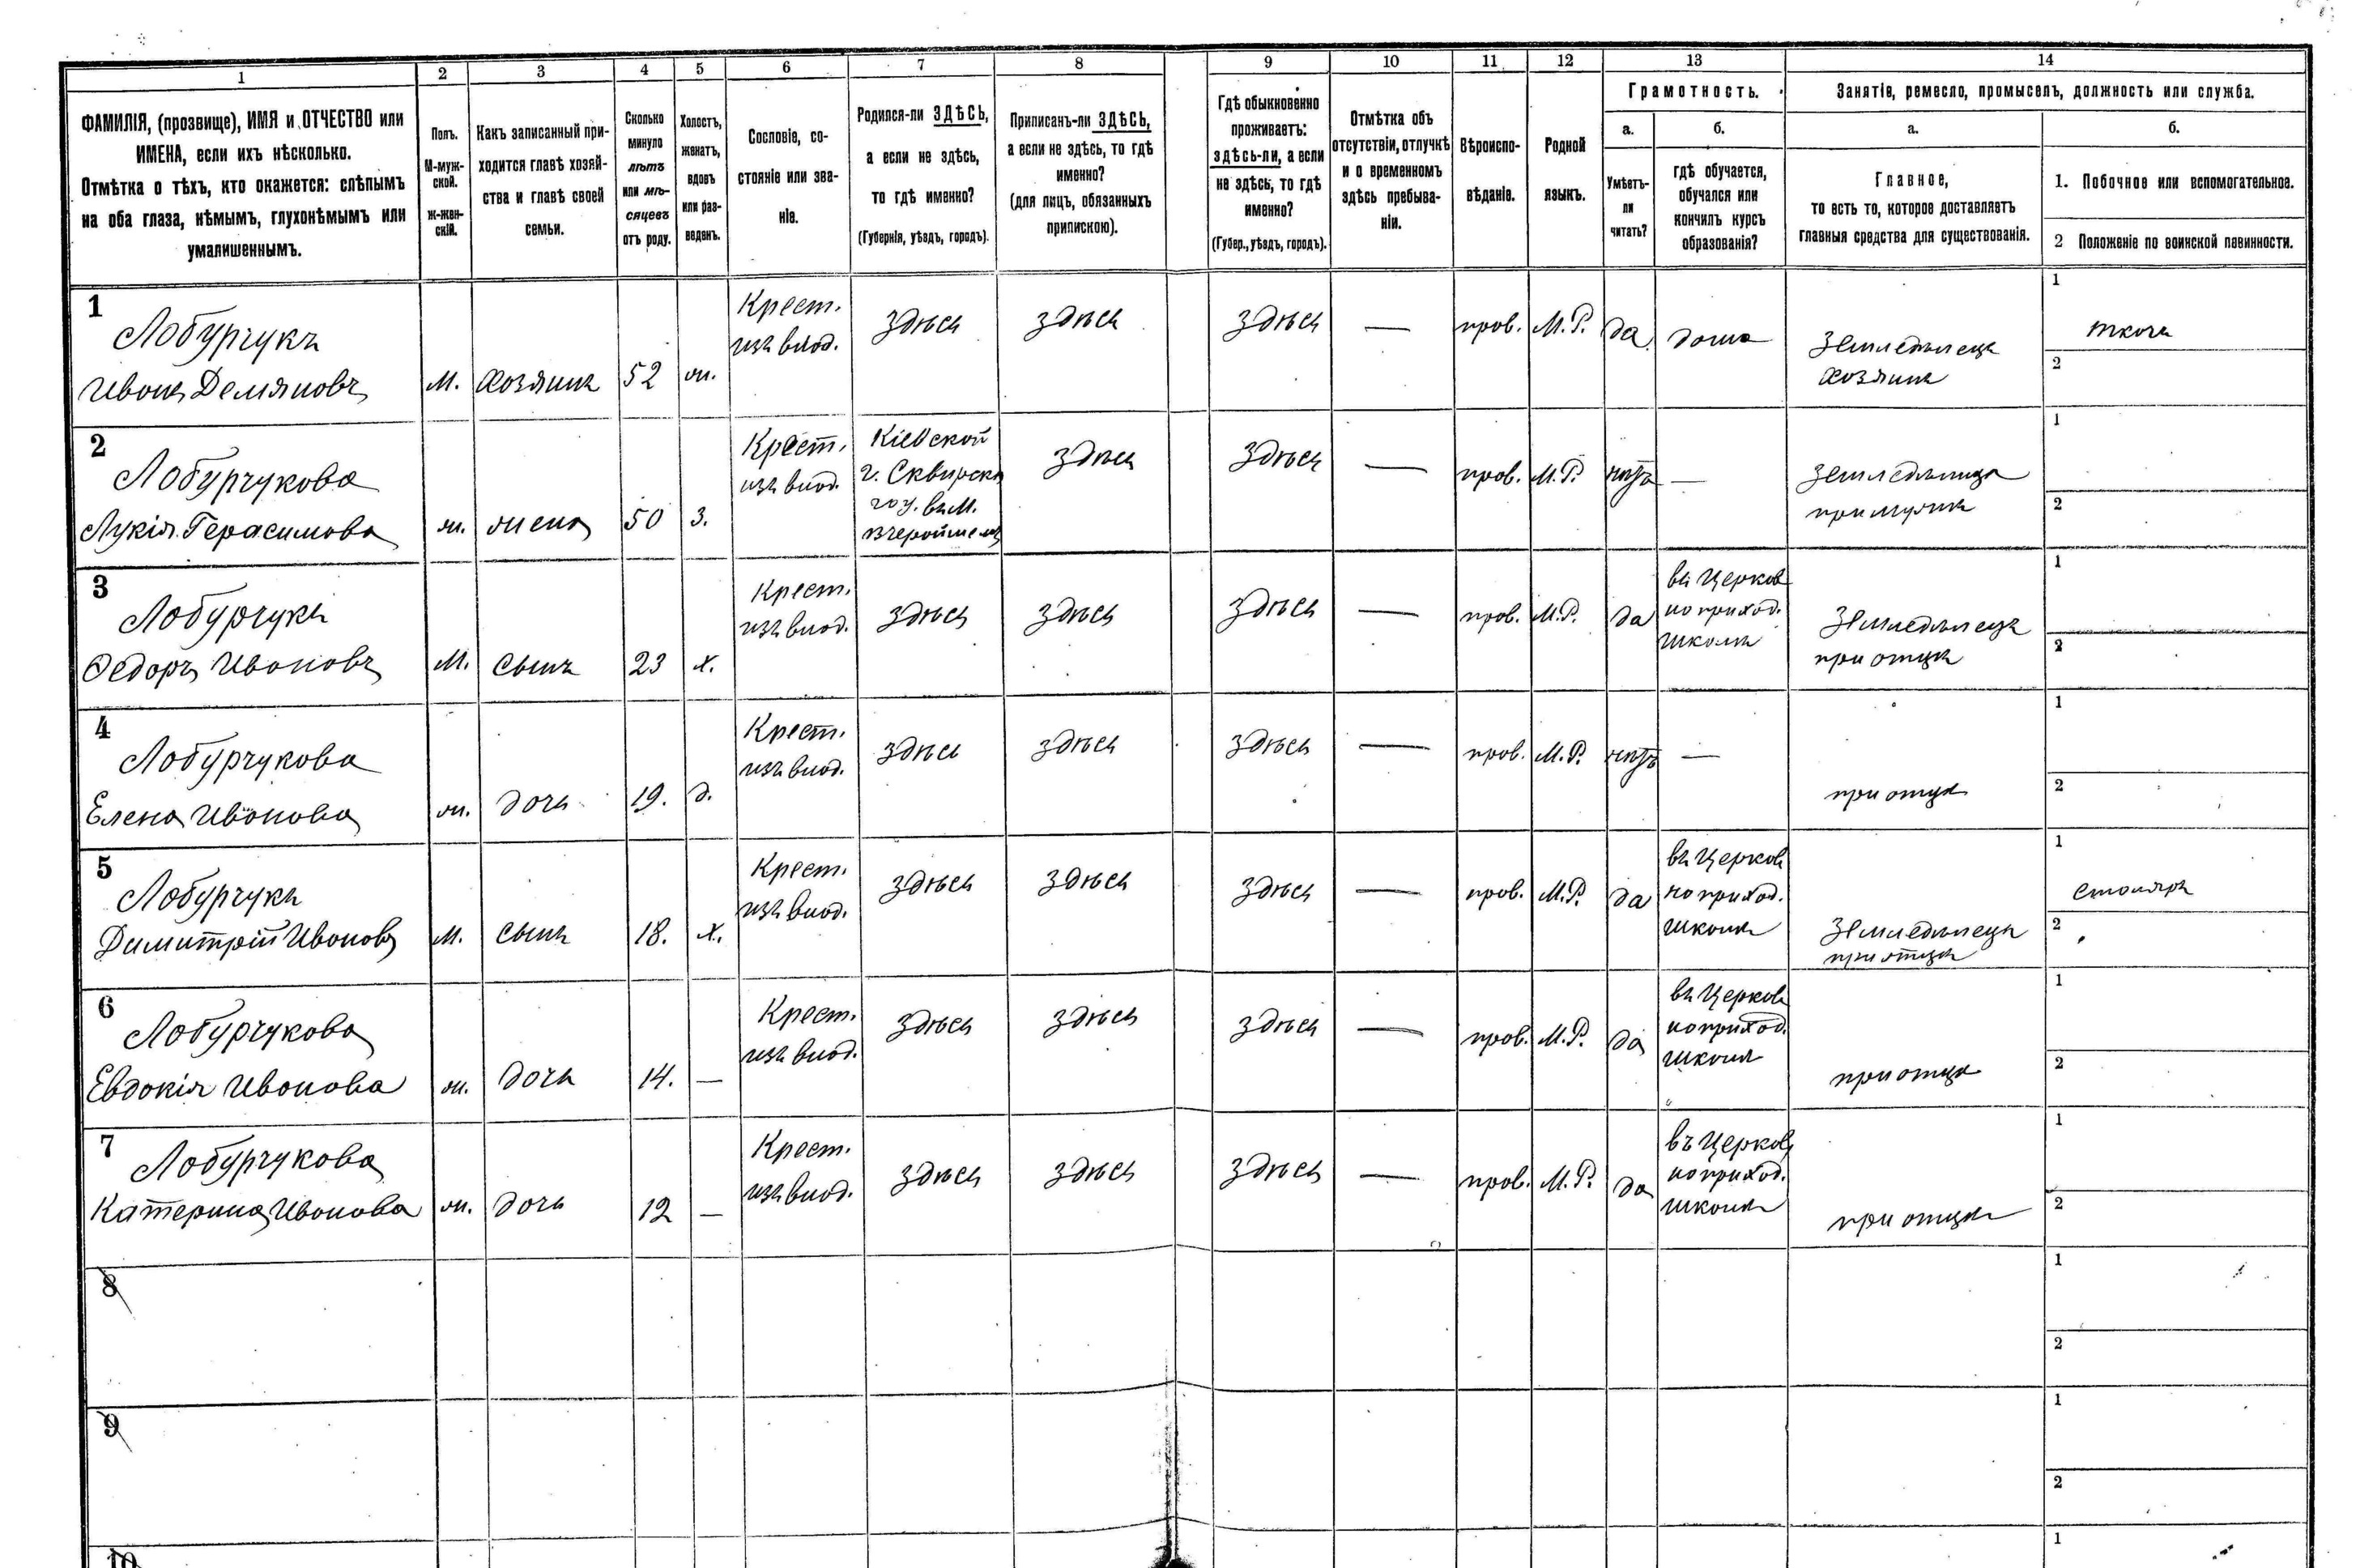 1 2 3 4 5 6 7 8 9 10 11 12 13 14
ФАМИЛІЯ, (прозвище), ИМЯ и ОТЧЕСТВО или
ИМЕНА, если ихъ нѣсколько.
Отмѣтка о тѣхъ, кто окажется: слѣпымъ
на оба глаза, нѣмымъ, глухонѣмымъ или
умалишеннымъ.
Полъ.
М-муж-
ской.
Ж-жен-
скій.
Какъ записанный при-
ходится главѣ хозяй-
ства и главѣ своей
семьи.
Сколько
минуло
лѣтъ
или мѣ-
сяцевъ
отъ роду.
Холостъ,
женатъ,
вдовъ
или раз-
веденъ.
Сословіе, со-
стояніе или зва-
ніе.
Родился-ли ЗДѢСЬ,
а если не здѣсь,
то гдѣ именно?
(Губернія, уѣздъ, городъ).
Приписанъ-ли ЗДѢСЬ,
а если не здѣсь, то гдѣ
именно?
(для лицъ, обязанныхъ
припискою).
Гдѣ обыкновенно
проживаетъ:
здѣсь-ли, а если
не здѣсь, то гдѣ
именно?
(Губер., уѣздъ, городъ).
Отмѣтка объ
отсутствіи, отлучкѣ
и о временномъ
здѣсь пребыва-
ніи.
Вѣроиспо-
вѣданіе.
Родной
языкъ.
Грамотность.
а.
Умѣетъ-
ли
читать?
б.
гдѣ обучается,
обучался или
кончилъ курсъ
образованія?
Занятіе, ремесло, промыселъ, должность или служба.
а.
Главное,
то есть то, которое доставляетъ
главныя средства для существованія.
б.
1. Побочное или вспомогательное.
2 Положеніе по воинской повинности.
1
Лобурчукъ
Иванъ Демяновъ
М.
хозяинъ
52
ж.
Крест.
изъ влад.
здѣсь
здѣсь
здѣсь
—
прав.
М.Р.
да
дома
Земледѣлецъ
хозяинъ
1
ткачъ
2
2
Лобурчукова
Лукія Герасимова
ж.
жена
50
з.
Крест.
изъ влад.
Кіевской
г. Сквирска
го у. въ М.
здѣсь
здѣсь
—
прав.
М.Р.
нѣтъ
—
земледѣлица
при мужѣ
1
2
3
Лобурчукъ
Федоръ Ивановъ
М.
сынъ
23
х.
Крест.
изъ влад.
здѣсь
здѣсь
здѣсь
—
прав.
М.Р.
да
въ Церков
но приход.
школѣ
Земледѣлецъ
при отцѣ
1
2
4
Лобурчукова
Елена Иванова
ж.
дочь
19.
д.
Крест.
изъ влад.
здѣсь
здѣсь
здѣсь
—
прав.
М.Р.
нѣтъ
—
при отцѣ
1
2
5
Лобурчукъ
Димитрій Ивановъ
М.
сынъ
18.
х.
Крест.
изъ влад.
здѣсь
здѣсь
здѣсь
—
прав.
М.Р.
да
въ Церков
но приход.
школѣ
Земледѣлецъ
при отцѣ
1
столяръ
2
6
Лобурчукова
Евдокія Иванова
ж.
дочь
14.
—
Крест.
изъ влад.
здѣсь
здѣсь
здѣсь
—
прав.
М.Р.
да
въ Церков
но приход.
школѣ
при отцѣ
1
2
7
Лобурчукова
Катерина Иванова
ж.
дочь
12
—
Крест.
изъ влад.
здѣсь
здѣсь
здѣсь
—
прав.
М.Р.
да
въ Церков
но приход.
школѣ
при отцѣ
1
2
8
1
2
9
1
2
10
1